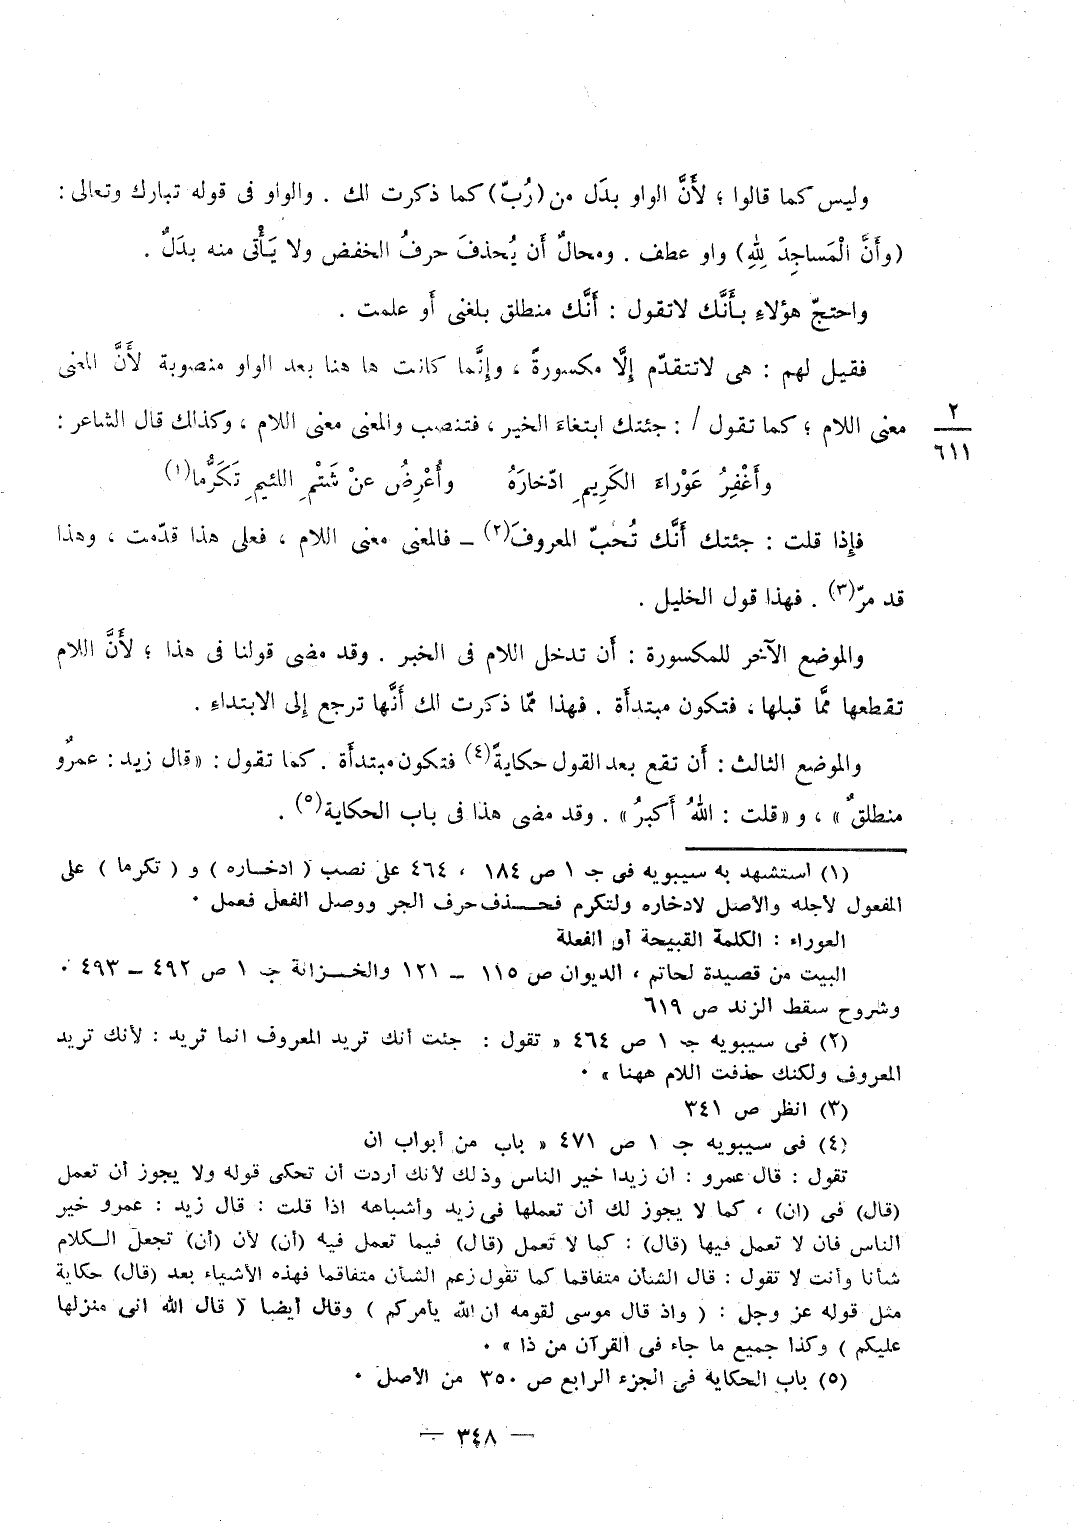 وليس كما قالوا ؛ لأَنَّ الواو بدَل من (رُبّ) كما ذكرت لك . والواو فى قوله تبارك وتعالى :
(وأَنَّ الْمَساجِدَ لِلهِ) واو عطف . ومحالٌ أَن يُحذفَ حرفُ الخفض ولا يَأْتى منه بدَلٌ .
واحتجّ هؤلاءِ بأَنَّك لاتقول : أَنَّك منطلق بلغنى أَو علمت .
فقيل لهم : هى لاتتقدّم إِلَّا مكسورةً ، وإِنَّما كانت ها هنا بعد الواو منصوبة لأَنَّ المعنى
معنى اللام ؛ كما تقول / : جئتك ابتغاءَ الخير ، فتنصب والمعنى معنى اللام ، وكذلك قال الشاعر :
٢
٦١١
وأَغْفِرُ عَوْراءَ الكَرِيمِ ادّخارَهُ وأُعْرِضُ عنْ شَتْمِ اللئيمِ تَكَرُّما(١)
فإِذا قلت : جئتك أَنَّك تُحبّ المعروفَ(٢) ـ فالمعنى معنى اللام ، فعلى هذا قدّمت ، وهذا
قد مرّ(٣) . فهذا قول الخليل .
والموضع الآخر للمكسورة : أَن تدخل اللام فى الخبر . وقد مضى قولنا فى هذا ؛ لأَنَّ اللام
تقطعها ممَّا قبلها ، فتكون مبتدأَة . فهذا ممّا ذكرت لك أَنَّها ترجع إِلى الابتداءِ .
والموضع الثالث : أَن تقع بعد القول حكايةً(٤) فتكون مبتدأَة . كما تقول : «قال زيد : عمرٌو
منطلقٌ» ، و «قلت : اللهُ أَكبرُ» . وقد مضى هذا فى باب الحكاية(٥) .
(١) استشهد به سيبويه فى جـ ١ ص ١٨٤ ، ٤٦٤ على نصب ( ادخاره ) و ( تكرما ) على
المفعول لأجله والأصل لادخاره ولتكرم فحذف حرف الجر ووصل الفعل فعمل ٠
العوراء : الكلمة القبيحة أو الفعلة
البيت من قصيدة لحاتم ، الديوان ص ١١٥ ـ ١٢١ والخزانة جـ ١ ص ٤٩٢ ـ ٤٩٣ ٠
وشروح سقط الزند ص ٦١٩
(٢) فى سيبويه جـ ١ ص ٤٦٤ « تقول : جئت أنك تريد المعروف انما تريد : لأنك تريد
المعروف ولكنك حذفت اللام ههنا » ٠
(٣) انظر ص ٣٤١
(٤) فى سيبويه جـ ١ ص ٤٧١ « باب من أبواب ان
تقول : قال عمرو : ان زيدا خير الناس وذلك لأنك أردت أن تحكى قوله ولا يجوز أن تعمل
(قال) فى (ان) ، كما لا يجوز لك أن تعملها فى زيد وأشباهه اذا قلت : قال زيد : عمرو خير
الناس فان لا تعمل فيها (قال) : كما لا تعمل (قال) فيما تعمل فيه (أن) لأن (أن) تجعل الكلام
شأنا وأنت لا تقول : قال الشأن متفاقما كما تقول زعم الشأن متفاقما فهذه الأشياء بعد (قال) حكاية
مثل قوله عز وجل : ( واذ قال موسى لقومه ان الله يأمركم ) وقال أيضا ( قال الله انى منزلها
عليكم ) وكذا جميع ما جاء فى القرآن من ذا » ٠
(٥) باب الحكاية فى الجزء الرابع ص ٣٥٠ من الأصل ٠
— ٣٤٨ —